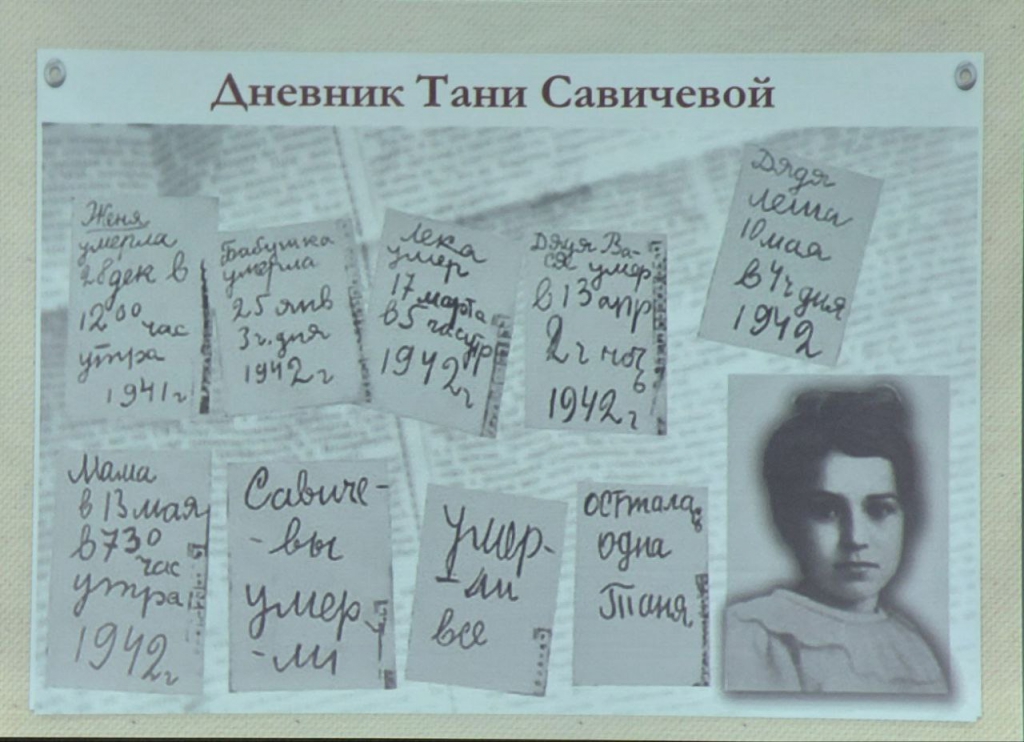 Дневник Тани Савичевой
Женя
умерла
28 дек в
12 00 час
утра
1941 г
Бабушка
умерла
25 янв
3 ч. дня
1942 г
Лека
умер
17 марта
в 5 час утр
1942 г
Дядя Ва-
ся умер
в 13 апр
2 ч ночь
1942 г
Дядя
Леша
10 мая
в 4 ч дня
1942
Мама
в 13 мая
в 7 30
час
утра
1942 г
Савиче-
-вы
умер
-ли
умер-
-ли
все
осттала
одна
Таня